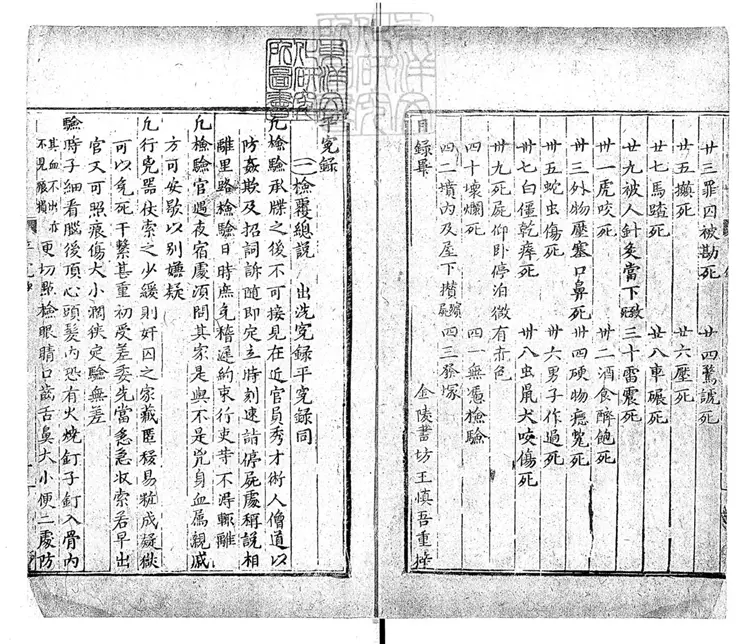 廿三罪囚被勘死 廿四驚諕死
廿五攧死 廿六壓死
廿七馬踏死 廿八車碾死
廿九被人針灸當下致死 三十雷震死
卅一虎咬死 卅二酒食醉飽死
卅三外物壓塞口鼻死 卅四硬物癮㲉死
卅五蛇虫傷死 卅六男子作過死
卅七白僵乾瘁死 卅八虫鼠犬咬傷死
卅九死屍仰卧停泊微有赤色
四十壞爛死 四一無憑檢驗
四二墳内及屋下攢殯屍 四三發塚
目録畢 金陵書坊王慎吾重梓
平寃録
㈠檢覆總説 出洗寃録平寃録同
凢檢驗承牒之後不可接見在近官員秀才術人僧道以
防姦欺及招詞訴隨即定立時刻速請停屍處稱説相
離里路檢驗日時庶免稽遲約束行吏等不得輒離
凢檢驗官遇夜宿處須問其家是與不是兇身血属親戚
方可安歇以别嫌疑
凢行兇器仗索之少緩則奸囚之家藏匿移易粧成疑獄
可以免死干繫甚重初受差委先當急急收索若早出
官又可照痕傷大小濶狹定驗無差
驗時子細看腦後頂心頭髮内恐有火燒釘子釘入骨内
其血不出亦
不見痕損 更切㸃檢眼睛口齒舌鼻大小便二處防
東洋文化研究所圖書